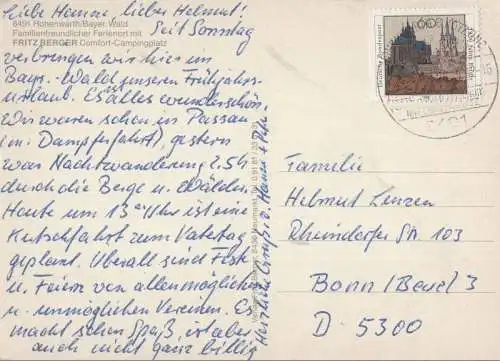 Liebe Hanne, lieber Helmut!
8491 Hohenwarth/Bayer. Wald
Familienfreundlicher Ferienort mit
FRITZ BERGER Comfort-Campingplatz
Seit Sonntag
verbringen wir hier im
Bayr. Wald unseren Frühjahrs-
urlaub. Es ist alles wunderschön.
Wir waren schon in Passau
(m. Dampferfahrt), gestern
war Nachtwanderung 2,5h
durch die Berge u. Wälder.
Heute um 13°° Uhr ist eine
Kutschfahrt zum Vatertag
geplant. Überall sind Feste
u. Feiern von allen möglichen
u. unmöglichen Vereinen. Es
macht schon Spaß, ist aber
auch nicht ganz billig
Herzliche Grüße v. Hanne +
Deutsche Bundespost
60
Familie
Helmut Lenzen
Rheindorfer Str. 103
Bonn/Beuel 3
D-5300
8491